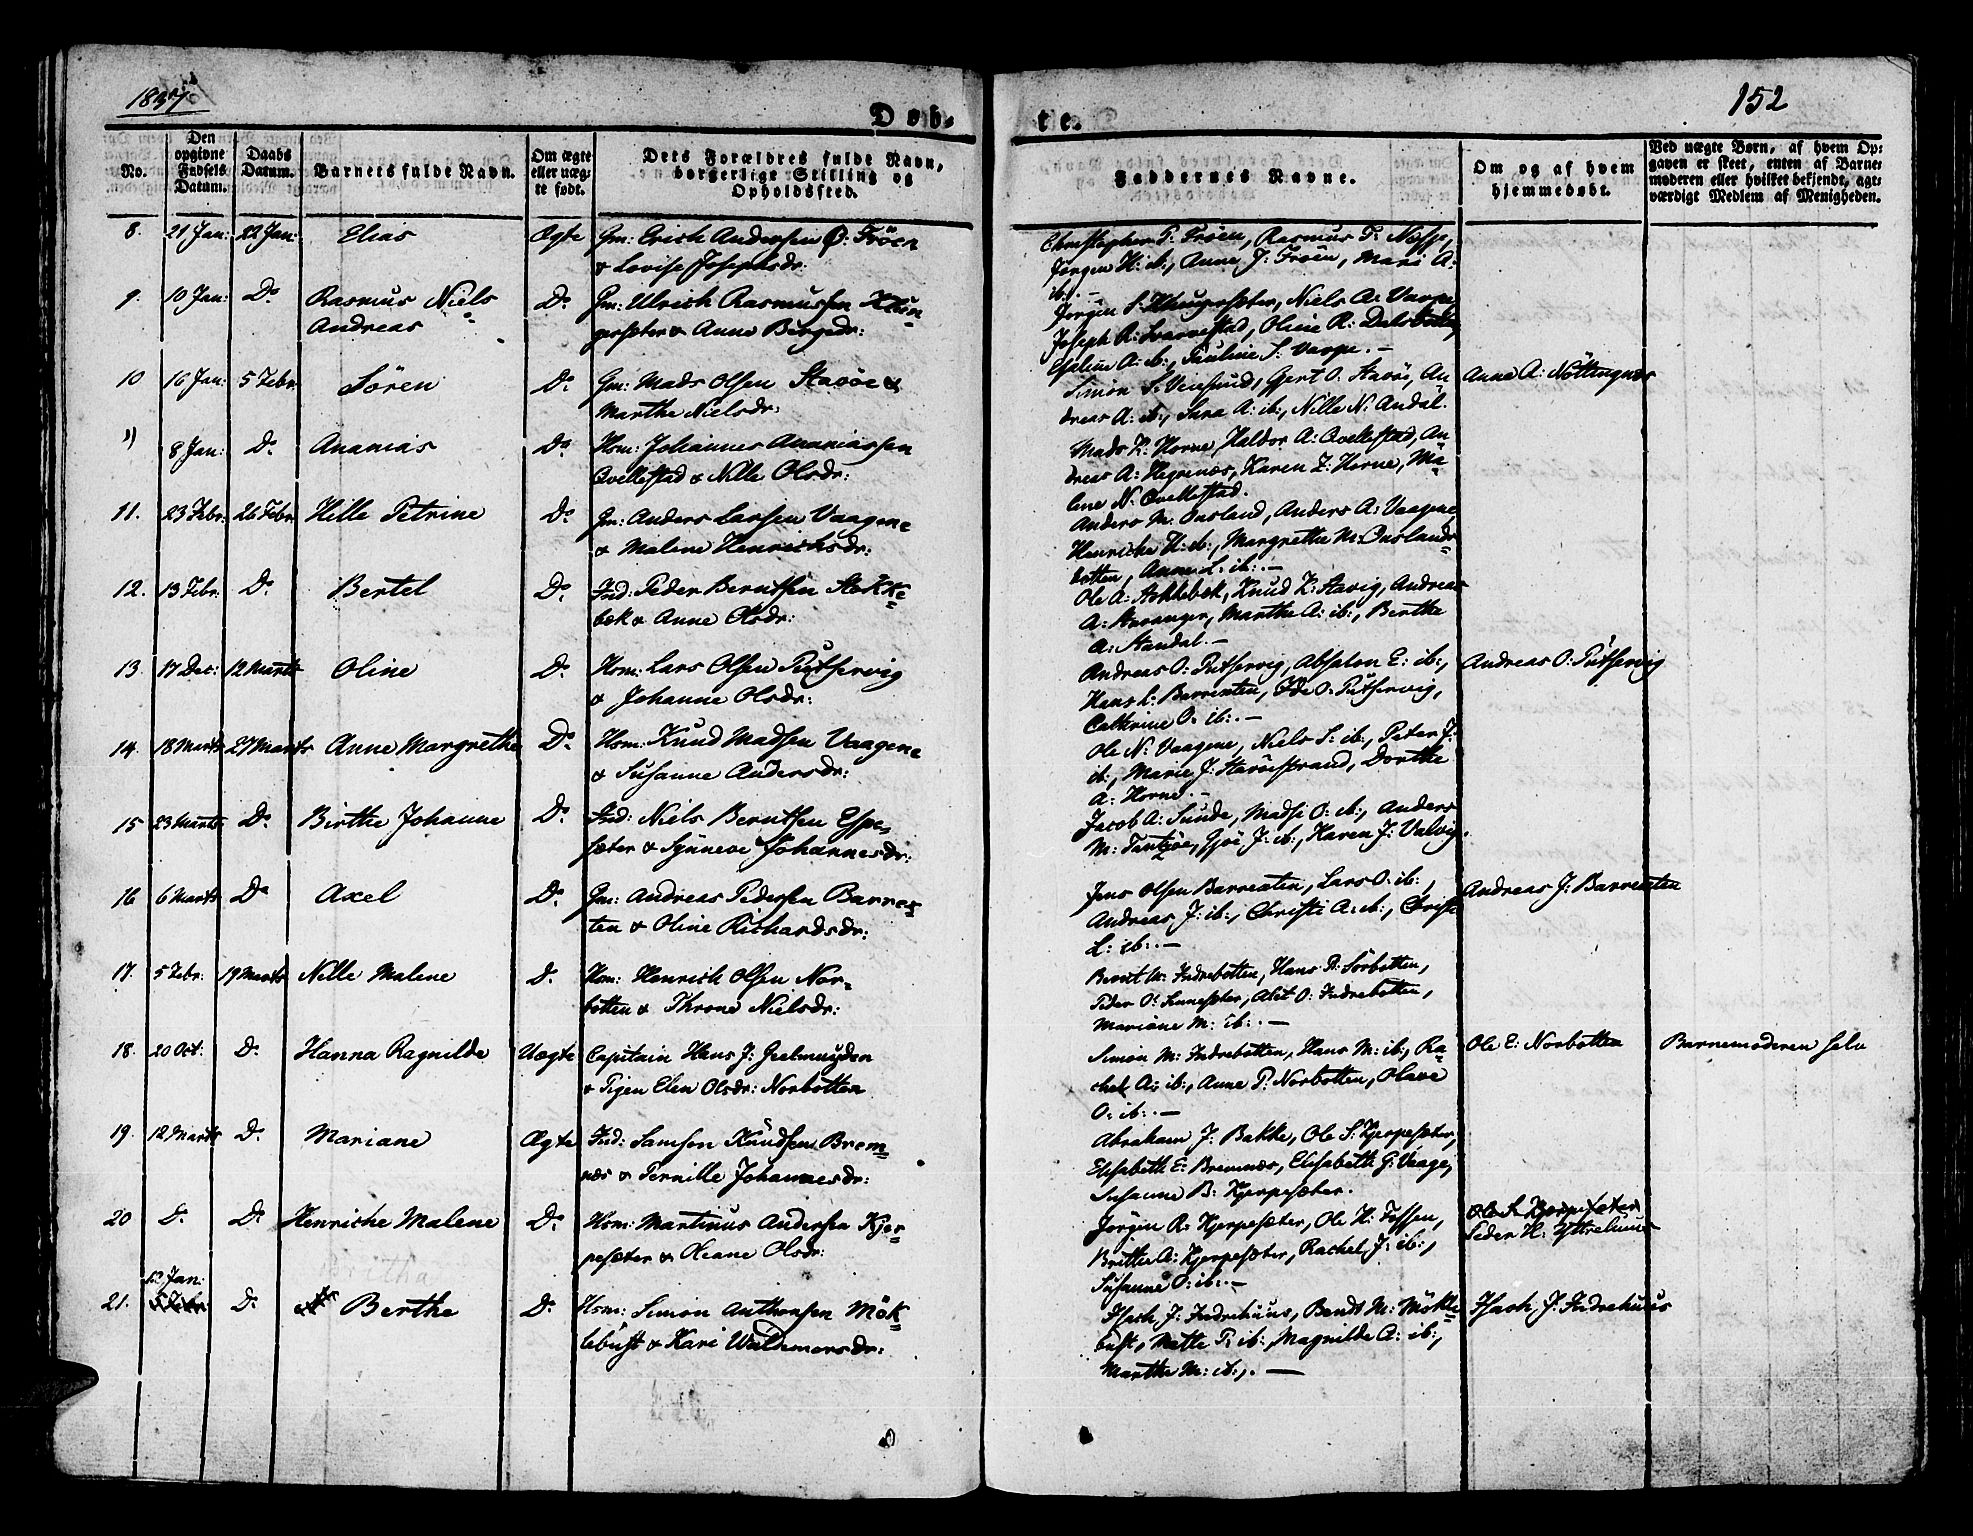 1837
152
Døb-
te.
No.
Den opgivne Fødsels Datum.
Daabs Datum.
Barnets fulde Navn.
Om ægte eller uægte født.
Dets Forældres fulde Navn, borgerlige Stilling og Opholdssted.
Faddernes Navne.
Om og af hvem hjemmedøbt.
Ved uægte Børn, af hvem Opgaven er skeet, enten af Barnemoderen eller hvilket bekjendt, agtværdigt Medlem af Menigheden.
8. 21 Jan: 22 Jan: Elias Ægte Gm: Erich Andersen Ø: Fröen
& Lovise Josephsdr:
Christopher P: Fröen, Rasmus T: Nesje,
Jörgen H: ib:, Anne J: Fröen, Mari A:
ib:. —
9. 10 Jan: Do Rasmus Niels Do Gm: Ulrich Rasmussen Haun-
Andreas geseter & Anne Birgedr:
Jörgen S: Haugeseter, Niels A: Varpe
Joseph R: Svarvestad, Oline R: Dalsbotten
Eseline A: ib:, Pauline S: Varpe. —
10 16 Jan: 5 Febr: Sören Do Gm: Mads Olsen Stavöe &
Marthe Nielsdr:
Simon S: Veiesund, Gjert O: Stavöe, An-
dreas A: ib:, Sara A: ib:, Nille N: Andal.
Anne A: Nöttingnæs
") 8 Jan: Do Ananias Do Hsm: Johannes Ananiassen
Qvellestad & Nille Olsdr:
Mads Z: Horne, Haldor A: Qvellestad, An-
dreas A: Hegrenæs, Karen Z: Horne, Ma-
lene N: Qvellestad.
11. 23 Febr: 26 Febr: Hille Petrine Do Gm: Anders Larsen Vaagene
& Malene Henrichsdr:
Anders M: Ousland, Anders A: Vaagene,
Henriche H: ib:, Margrethe M: Ouslands-
botten, Anne L: ib:. —
12. 13 Febr: Do Bertel Do Ind: Peder Berntsen Stokke-
bek & Anne Olsdr:
Ole A: Askkebek, Knud Z: Stavig, Andreas
A: Stavanger, Marthe A: ib:, Berthe
A: Standal. —
13. 17 Dec: 12 Marts Oline Do Hsm: Lars Olsen Putservig
& Johanne Olsdr:
Andreas O: Putservig, Absalon E: ib:,
Hans L: Barrenten, Ode O: Putservig,
Cathrine O: ib:. —
Andreas O: Putservig
14. 18 Marts 27 Marts Anne Margrethe Do Hsm: Knud Madsen Vaagene
& Susanne Andersdr:
Ole N: Vaagene, Niels S: ib:, Peter J:
ib:, Marie J: Stavöestrand, Dorthe
A: Horne. —
15 23 Marts Do Birthe Johanne Do Ind: Niels Berntsen Espe-
seter & Synneve Johannesdr:
Jacob A: Sunde, Madsi O: ib:, Anders
M: Tautzöe, Gjöe J: ib:, Karen J: Valvig.
16 6 Marts Do Axel Do Gm: Andreas Pedersen Barrex
ten & Oline Richardsdr:
Jens Olsen Barrexten, Lars O: ib:,
Andreas J: ib:, Christi A: ib:, Christi
L: ib:. —
Andreas J: Barrexten
17. 5 Febr: 19 Marts Nille Malene Do Hsm: Henrich Olsen Nor-
botten & Throne Nielsdr:
Bernt M: Indrebotten, Hans R: Sörbotten,
Peder O: Sinneseter, Alet O: Indrebotten,
Mariane M: ib:. —
18. 20 Oct: Do Hanna Ragnilde Uægte Capitain Hans J: Geelmuyden
& Pigen Elen Olsdr: Norbotten
Simon M: Indrebotten, Hans M: ib:, Ra-
chel A: ib:, Anne P: Norbotten, Olave
O: ib:. —
Ole E: Norbotten
Barnemoderen selv
19. 12 Marts Do Mariane Ægte Ind: Samson Knudsen Brem-
næs & Pernille Johannesdr:
Abraham J: Bakke, Ole S: Kjerpeseter,
Elisabeth E: Bremnæs, Elisabeth G: Vaage,
Susanne B: Kjerpeseter.
20 Do Do Henriche Malene Do Hsm: Martinus Andersen Kjer-
peseter & Oliane Olsdr:
Jörgen R: Kjerpeseter, Ole H: Fossen,
Britte A: Kjerpeseter, Rachel J: ib:,
Susanne O: ib:. —
Ole S. Kjerpeseter
Peder H: Yttrehuus
21. 13 Jan: Do Berthe Do Hsm: Simon Anthonsen Mök-
lebust & Kari Waldemarsdr:
Isach J: Indrehuus, Berndt M: Mökle-
bust, Mette P: ib:, Magnilde A: ib:,
Marthe M: ib:,. —
Isach J: Indrehuus